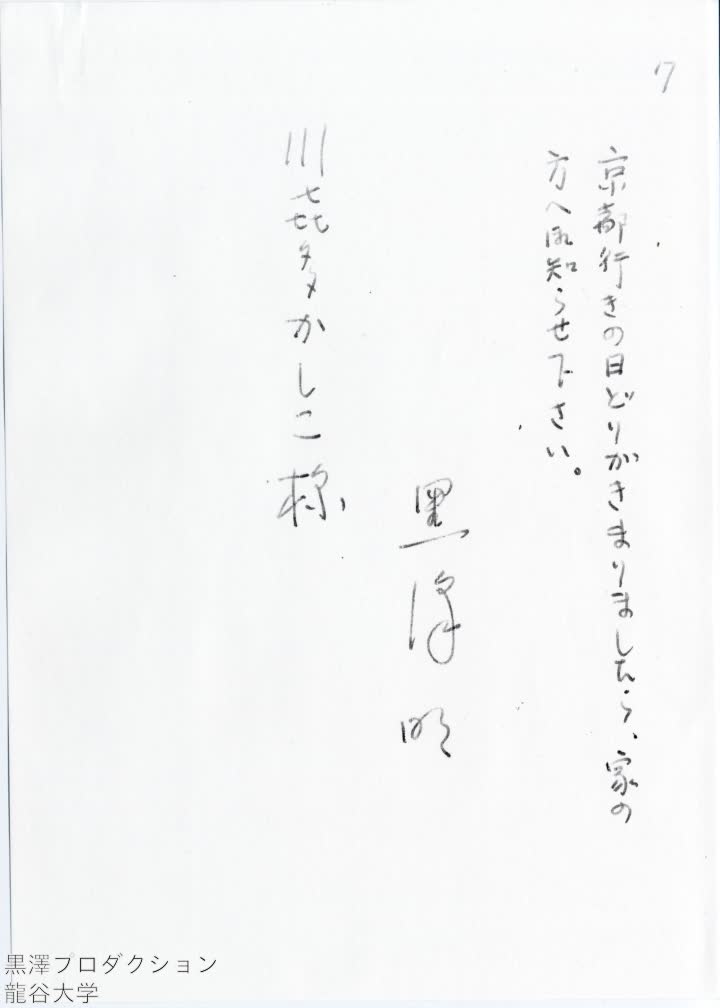 7
京都行きの日どりがきまりましたら、家の
方へ御知らせ下さい。
黒澤明
川喜多かしこ様
黒澤プロダクション
龍谷大学